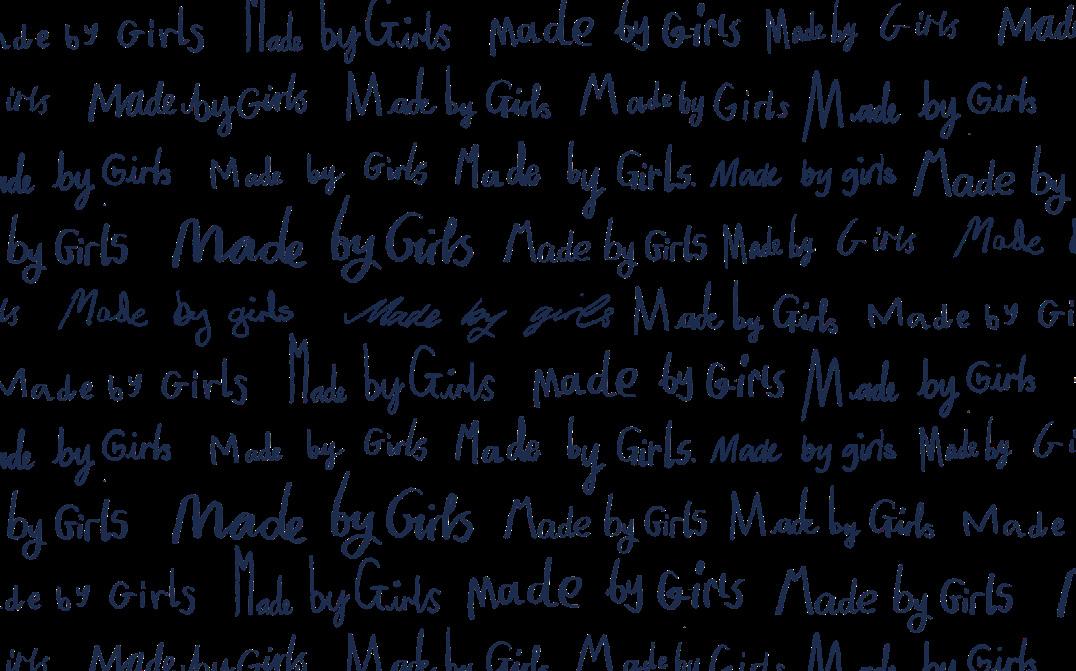 Made by Girls Made by Girls Made by Girls Made by Girls Made
Girls Made by Girls Made by Girls Made by Girls Made by Girls
Made by Girls Made by Girls Made by Girls. Made by girls Made by
by Girls Made by Girls Made by Girls Made by Girls Made
Made by girls Made by girls Made by Girls Made by Gi
Made by Girls Made by Girls Made by Girls Made by Girls
Made by Girls Made by Girls Made by Girls. Made by girls Made by Gi
by Girls Made by Girls Made by Girls Made by Girls Made
ade by Girls Made by Girls Made by Girls Made by Girls
Girls Made by Girls Made by Girls Made by Girls Made by Girls